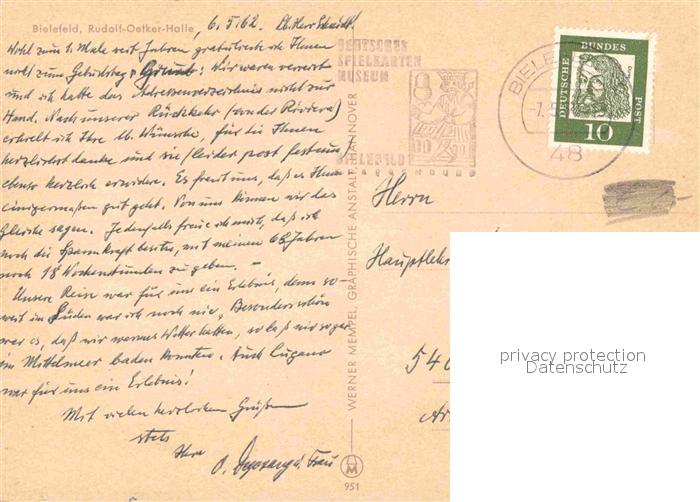 Bielefeld, Rudolf-Oetker-Halle
6. 5. 62. Lb. Herr Schmidt!
Wohl zum 1. Male seit Jahren gratulierte ich Ihnen
nicht zum Geburtstag. Grund: Wir waren verreist
und ich hatte das Adressenverzeichnis nicht zur
Hand. Nach unserer Rückkehr (von der Riviera)
erhielt ich Ihre lb. Wünsche, für die ich Ihnen
herzlichst danke und sie (leider post festum)
ebenso herzlich erwidere. Es freut uns, daß es Ihnen
einigermaßen gut geht. Von uns können wir das
Gleiche sagen. Jedenfalls freue ich mich, daß ich
noch die Spannkraft besitze, mit meinen 68 Jahren
noch 18 Wochenstunden zu geben. –
Unsere Reise war für uns ein Erlebnis, denn so
weit im Süden war ich noch nie. Besonders schön
war es, daß wir warmes Wetter hatten, so daß wir sogar
im Mittelmeer baden konnten. Auch Lugano
war für uns ein Erlebnis!
Mit vielen herzlichen Grüßen
stets
Ihre
u. Frau
WERNER MEMPEL, GRAPHISCHE ANSTALT, HANNOVER
951
DEUTSCHES
SPIELKARTEN
MUSEUM
BIELEFELD
BIELE
-7.5
48
DEUTSCHE BUNDES POST
10
Herrn
Hauptlehr
540
privacy protection
Datenschutz